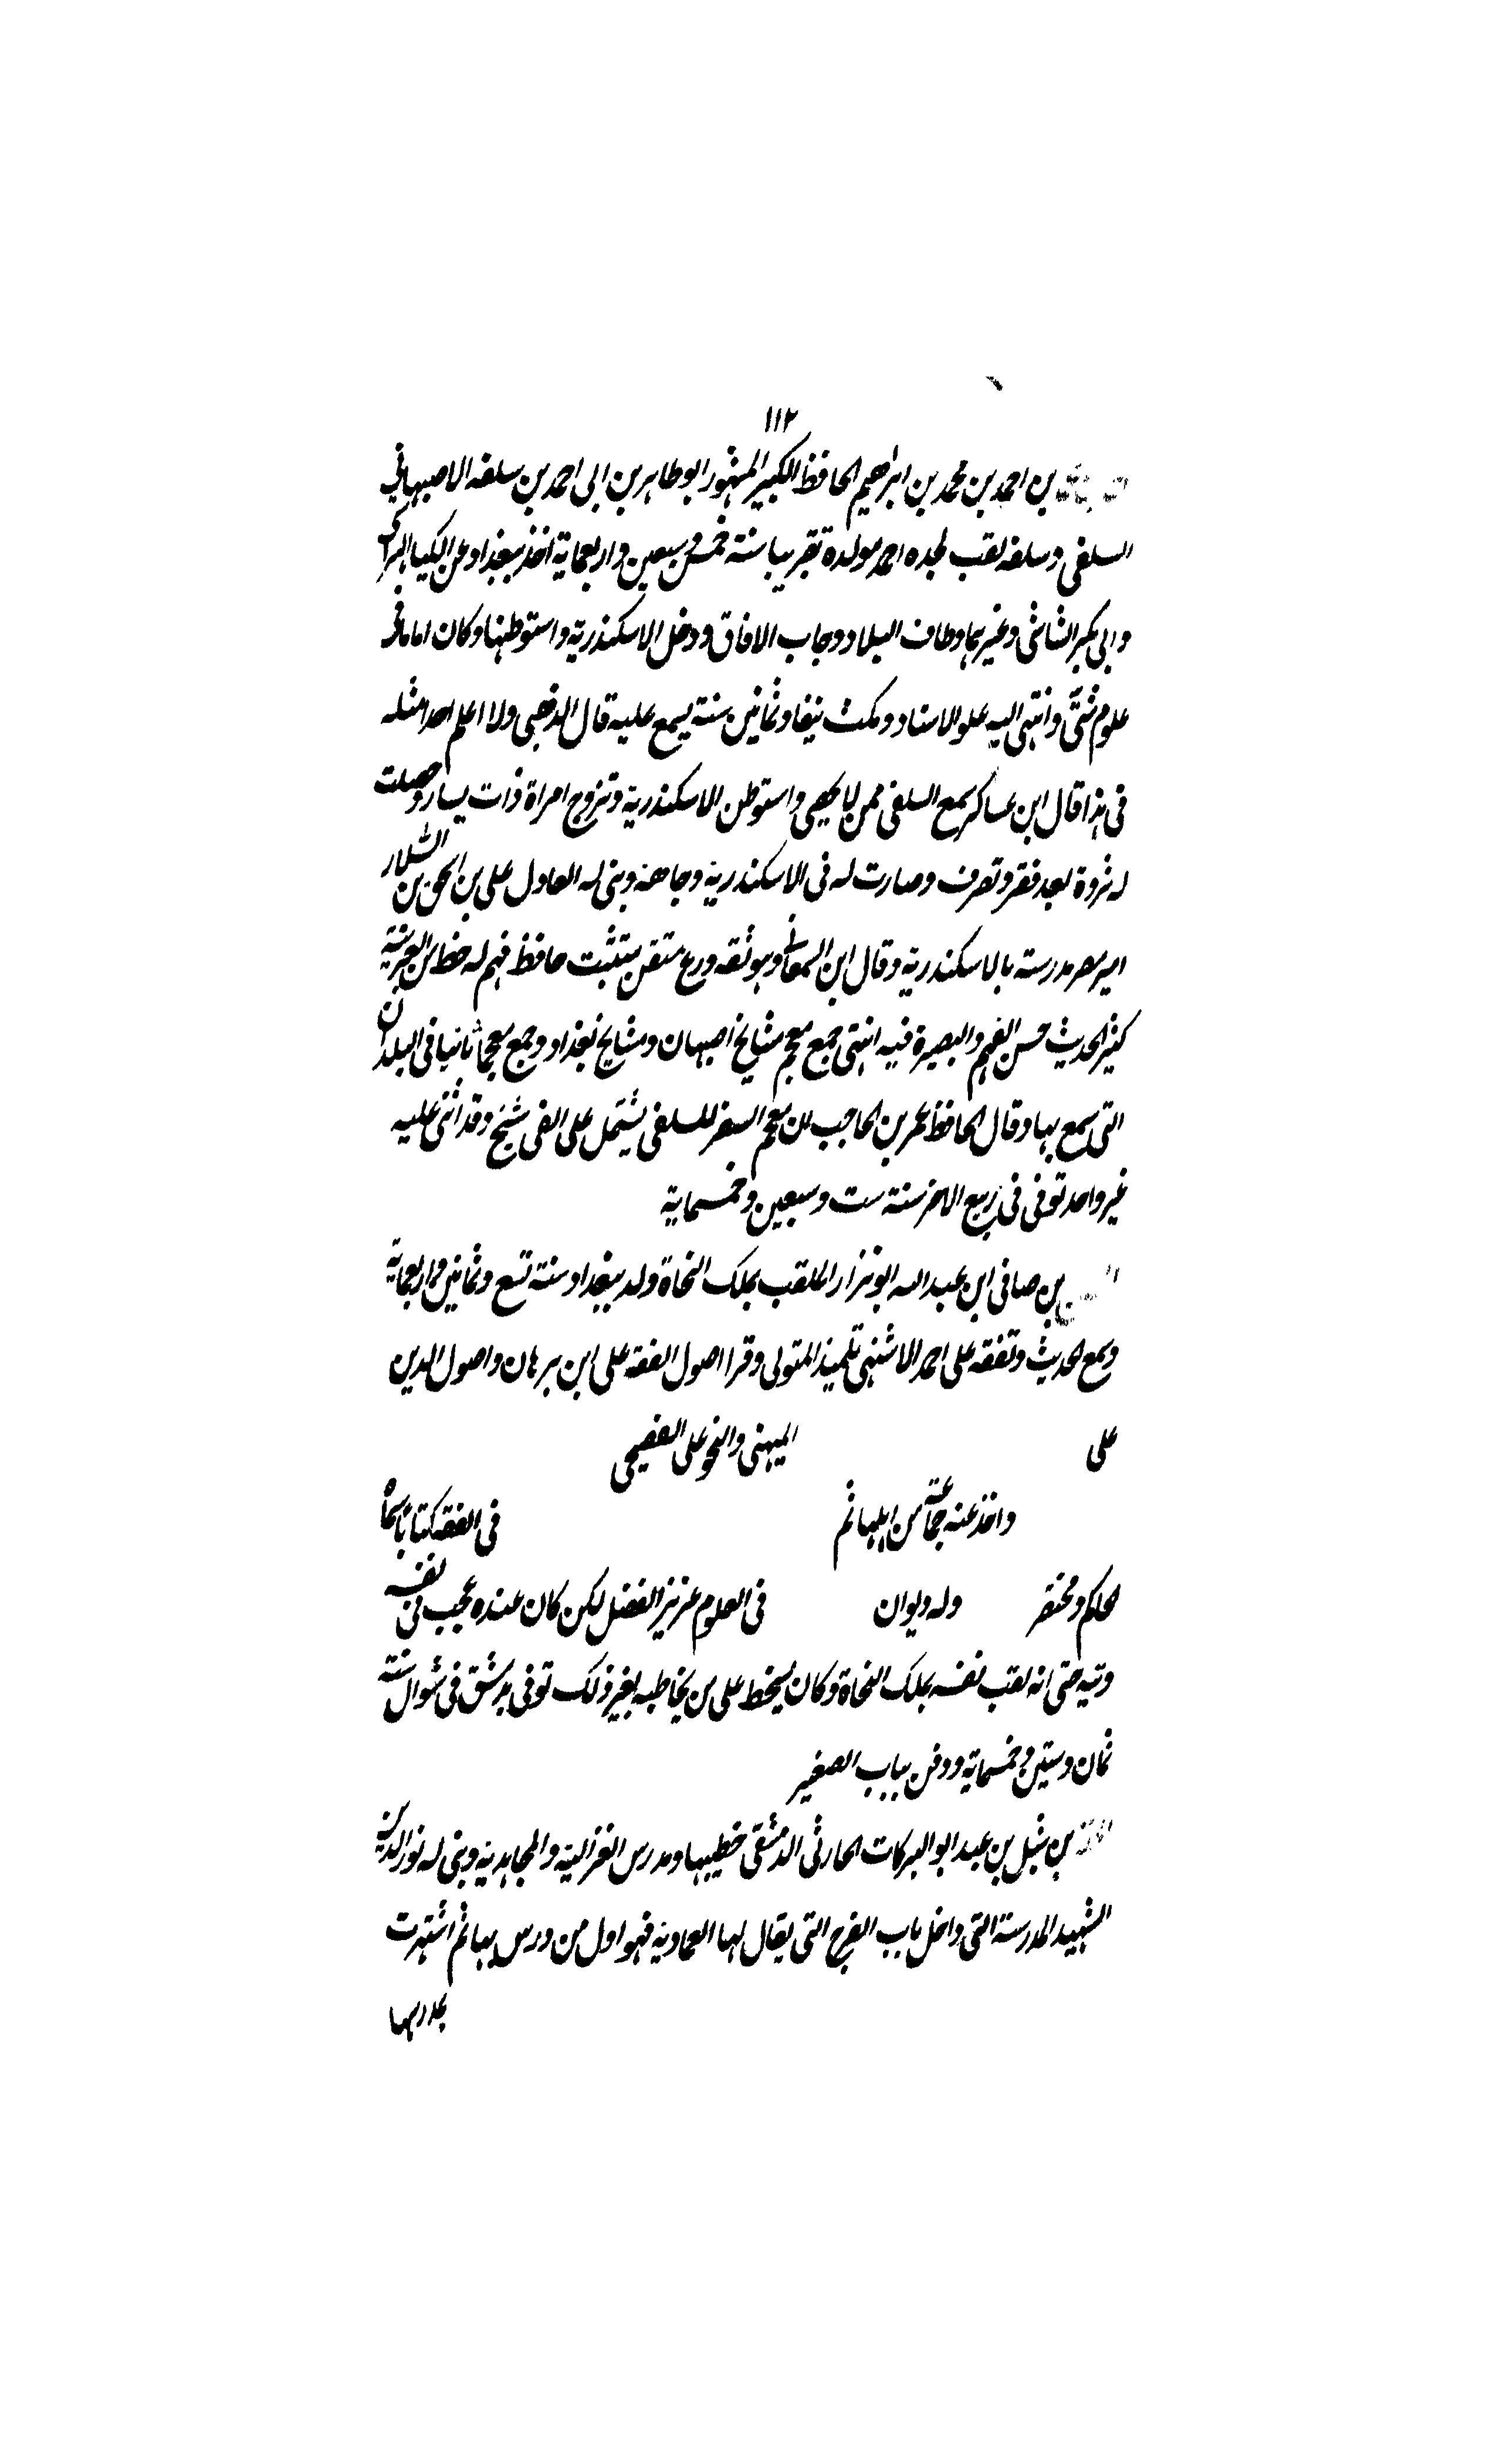 ١١٢
بن احمد بن محمد بن ابراهيم الحافظ الكبير المشهور ابو طاهر بن ابى احمد بن سلفه الاصبهاني
السلفى وسلفه لقب لجده احمد مولده تقريبا سنة خمس وسبعين واربعماية اخذ ببغداد عن الكيا الهراسى
وابى بكر الشاشى وغيرهما وطاف البلاد وجاب الافاق ودخل الاسكندرية واستوطنها وكان اماما فى
علوم شتى وانتهى اليه علو الاسناد ومكث نيفا وثمانين سنة يسمع عليه قال الذهبى ولا اعلم احدا مثله
فى هذا قال ابن عساكر سمع السلفى ممن لا يحصى واستوطن الاسكندرية وتزوج امراة ذات يسار وحصلت
له ثروة بعد فقر وتصرف وصارت له فى الاسكندرية وجاهة وبنى له العادل على بن اسحق بن السلار
امير مصر مدرسته بالاسكندرية وقال ابن السمعانى وهو ثقه ورع متقن متثبت حافظ فهم له حظ من العربية
كثير الحديث حسن الفهم والبصيرة فيه انتهى جمع معجم مشايخ اصبهان ومشايخ بغداد وجمع معجما ثانيا فى البلدان
التى سمع بها وقال الحافظ عمر بن الحاجب ان معجم السفر للسلفى يشتمل على الفى شيخ وقد اثنى عليه
غير واحد توفى فى ربيع الاخر سنة ست وسبعين وخمسماية
بن صافى ابن عبد الله ابو نزار الملقب بملك النحاة ولد ببغداد سنة تسع وثمانين واربعماية
وسمع الحديث وتفقه على احمد الاشنهى تلميذ المتولى وقرا اصول الفقه على ابن برهان واصول الدين
على الميهنى والنحو على الفصيحى
واخذ عنه جماعة من اهلها ثم فى الفقه كتابا سماه
الحاكم ومختصر وله ديوان فى العلوم عزيز الفضل لكن كان عنده عجب فى نفسه
وتيه حتى انه لقب نفسه بملك النحاة وكان يسخط على من يخاطبه بغير ذلك توفى بدمشق فى شوال سنة
ثمان وستين وخمسماية ودفن بباب الصغير
بن شبل بن عبد ابو البركات الحارثى الدمشقى خطيبها ومدرس الغزالية والمجاهدية وبنى له نور الدين
الشهيد المدرسة التى داخل باب الفرج التى يقال لها العمادية فهو اول من درس بها ثم اشتهرت
بمدرسها